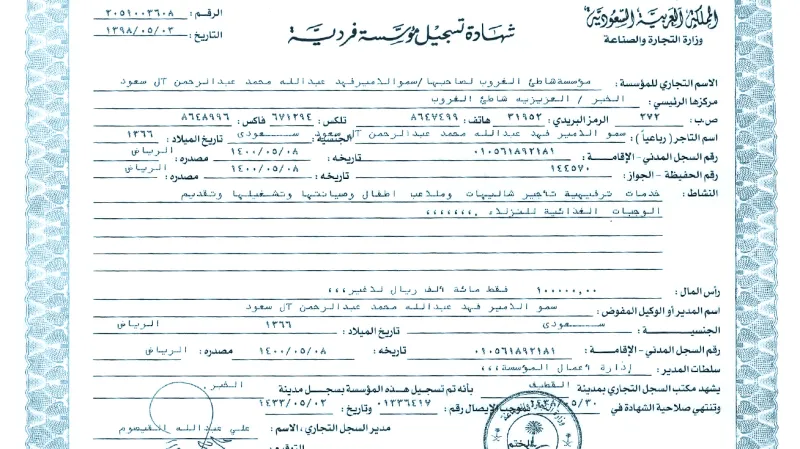 المملكة العربية السعودية
وزارة التجارة والصناعة
شهادة تسجيل مؤسسة فردية
الرقم : ٢٠٥١٠٠٣٦٠٨
التاريخ : ١٣٩٨/٠٥/٠٣
الاسم التجاري للمؤسسة : مؤسسة شاطئ الغروب لصاحبها/سموالاميرفهد عبدالله محمد عبدالرحمن آل سعود
مركزها الرئيسي : الخبر / العزيزيه شاطئ الغروب
ص.ب : ٢٧٢ الرمز البريدي : ٣١٩٥٢ هاتف : ٨٦٤٧٤٩٩ تلكس : ٦٧١٢٩٤ فاكس : ٨٦٤٨٩٩٦
اسم التاجر ( رباعياً ) : سمو الامير فهد عبدالله محمد عبدالرحمن آل سعود الجنسية : سعودى تاريخ الميلاد : ١٣٦٦
رقم السجل المدني - الإقامة : ٠١٠٥٦١٨٩٢١٨١ تاريخه : ١٤٠٠/٠٥/٠٨ مصدره : الرياض
رقم الحفيظة - الجواز : ١٤٤٥٧٠ تاريخه : ١٤٠٠/٠٥/٠٨ مصدره : الرياض
النشاط : خدمات ترفيهية تأجير شاليهات وملاعب اطفال وصيانتها وتشغيلها وتقديم
الوجبات الغذائية للنزلاء .,,,,,,,
رأس المال : ١٠٠٠٠٠,٠٠ فقط مائة الف ريال لاغير,,,
اسم المدير أو الوكيل المفوض : سمو الامير فهد عبدالله محمد عبدالرحمن آل سعود
الجنسيــة : سعودى تاريخ الميلاد : ١٣٦٦ الرياض
رقم السجل المدني - الإقامة : ٠١٠٥٦١٨٩٢١٨١ تاريخه : ١٤٠٠/٠٥/٠٨ مصدره : الرياض
سلطات المدير : إدارة أعمال المؤسسة,,,
يشهد مكتب السجل التجاري بمدينة القطيف بأنه تم تسجيل هذه المؤسسة بسجل مدينة الخبر.
وتنتهي صلاحية الشهادة في ١٤٣٨/٠٥/٣٠ بموجب الإيصال رقم : ٠١٣٣٦٤١٧ وتاريخ : ١٤٣٣/٠٥/٠٣
مدير السجل التجاري، الاسم : علي عبدالله الغيصوم
الختم
التوقيع